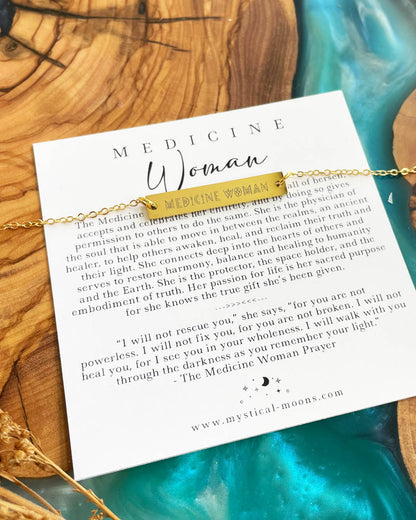 MEDICINE
Woman
MEDICINE WOMAN
The Medicine all of herself,
accepts and doing so gives
permission to others to do the same. She is the physician of
the soul that is able to move in between the realms, an ancient
healer, to help others awaken, heal, and reclaim their truth and
their light. She connects deep into the hearts of others and
serves to restore harmony, balance and healing to humanity
and the Earth. She is the protector, the space holder, and the
embodiment of truth. Her passion for life is her sacred purpose
for she knows the true gift she's been given.
...>>>>><<<...
"I will not rescue you," she says, "for you are not
powerless. I will not fix you, for you are not broken. I will not
heal you, for I see you in your wholeness. I will walk with you
through the darkness as you remember your light."
- The Medicine Woman Prayer
www.mystical-moons.com